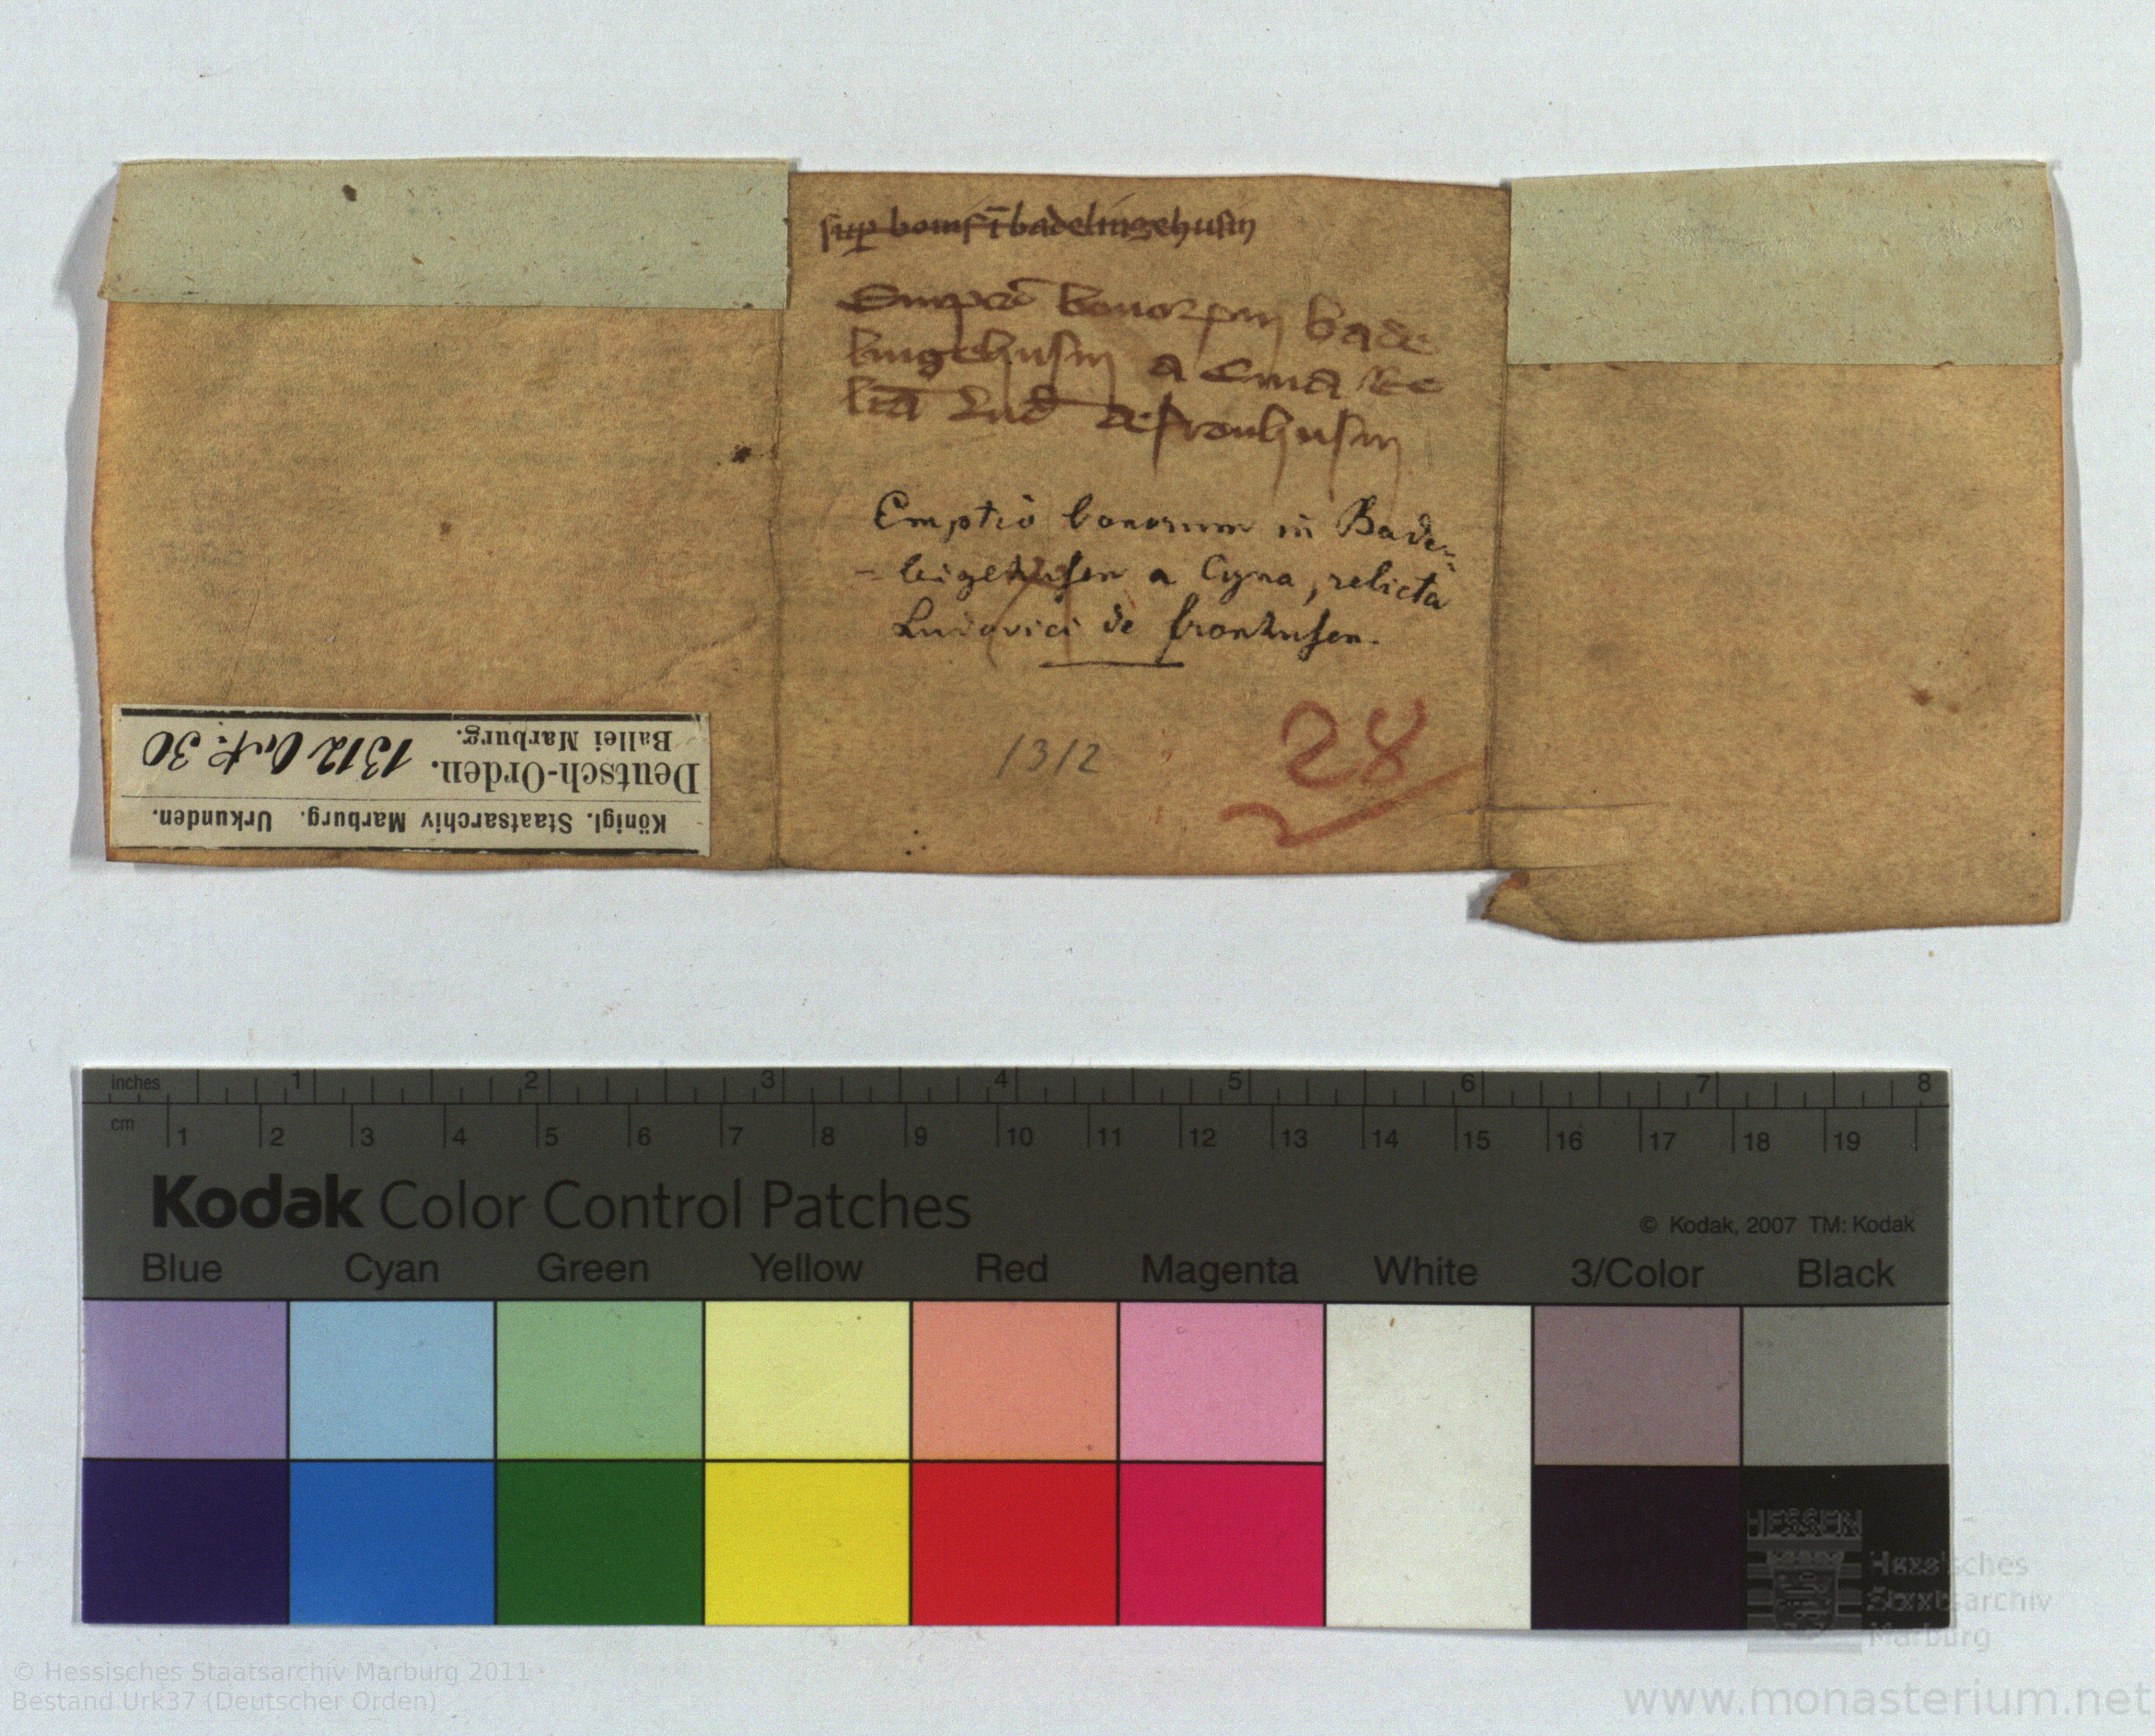 sup bonis ī badelingehusin
bonorum in bade
lingehusin a
lud de fronhusin
Emptio bonorum in Bade-
- lingehusen a Cyna, relicta
Ludovici de fronhusen.
1312
28
Königl. Staatsarchiv Marburg. Urkunden.
Deutsch-Orden. 1312 Oct. 30
Ballei Marburg.
inches 1 2 3 4 5 6 7 8
cm 1 2 3 4 5 6 7 8 9 10 11 12 13 14 15 16 17 18 19
Kodak Color Control Patches
© Kodak, 2007 TM: Kodak
Blue Cyan Green Yellow Red Magenta White 3/Color Black
HESSEN
Hessisches
Staatsarchiv
Marburg
© Hessisches Staatsarchiv Marburg 2011
Bestand Urk37 (Deutscher Orden)
www.monasterium.net